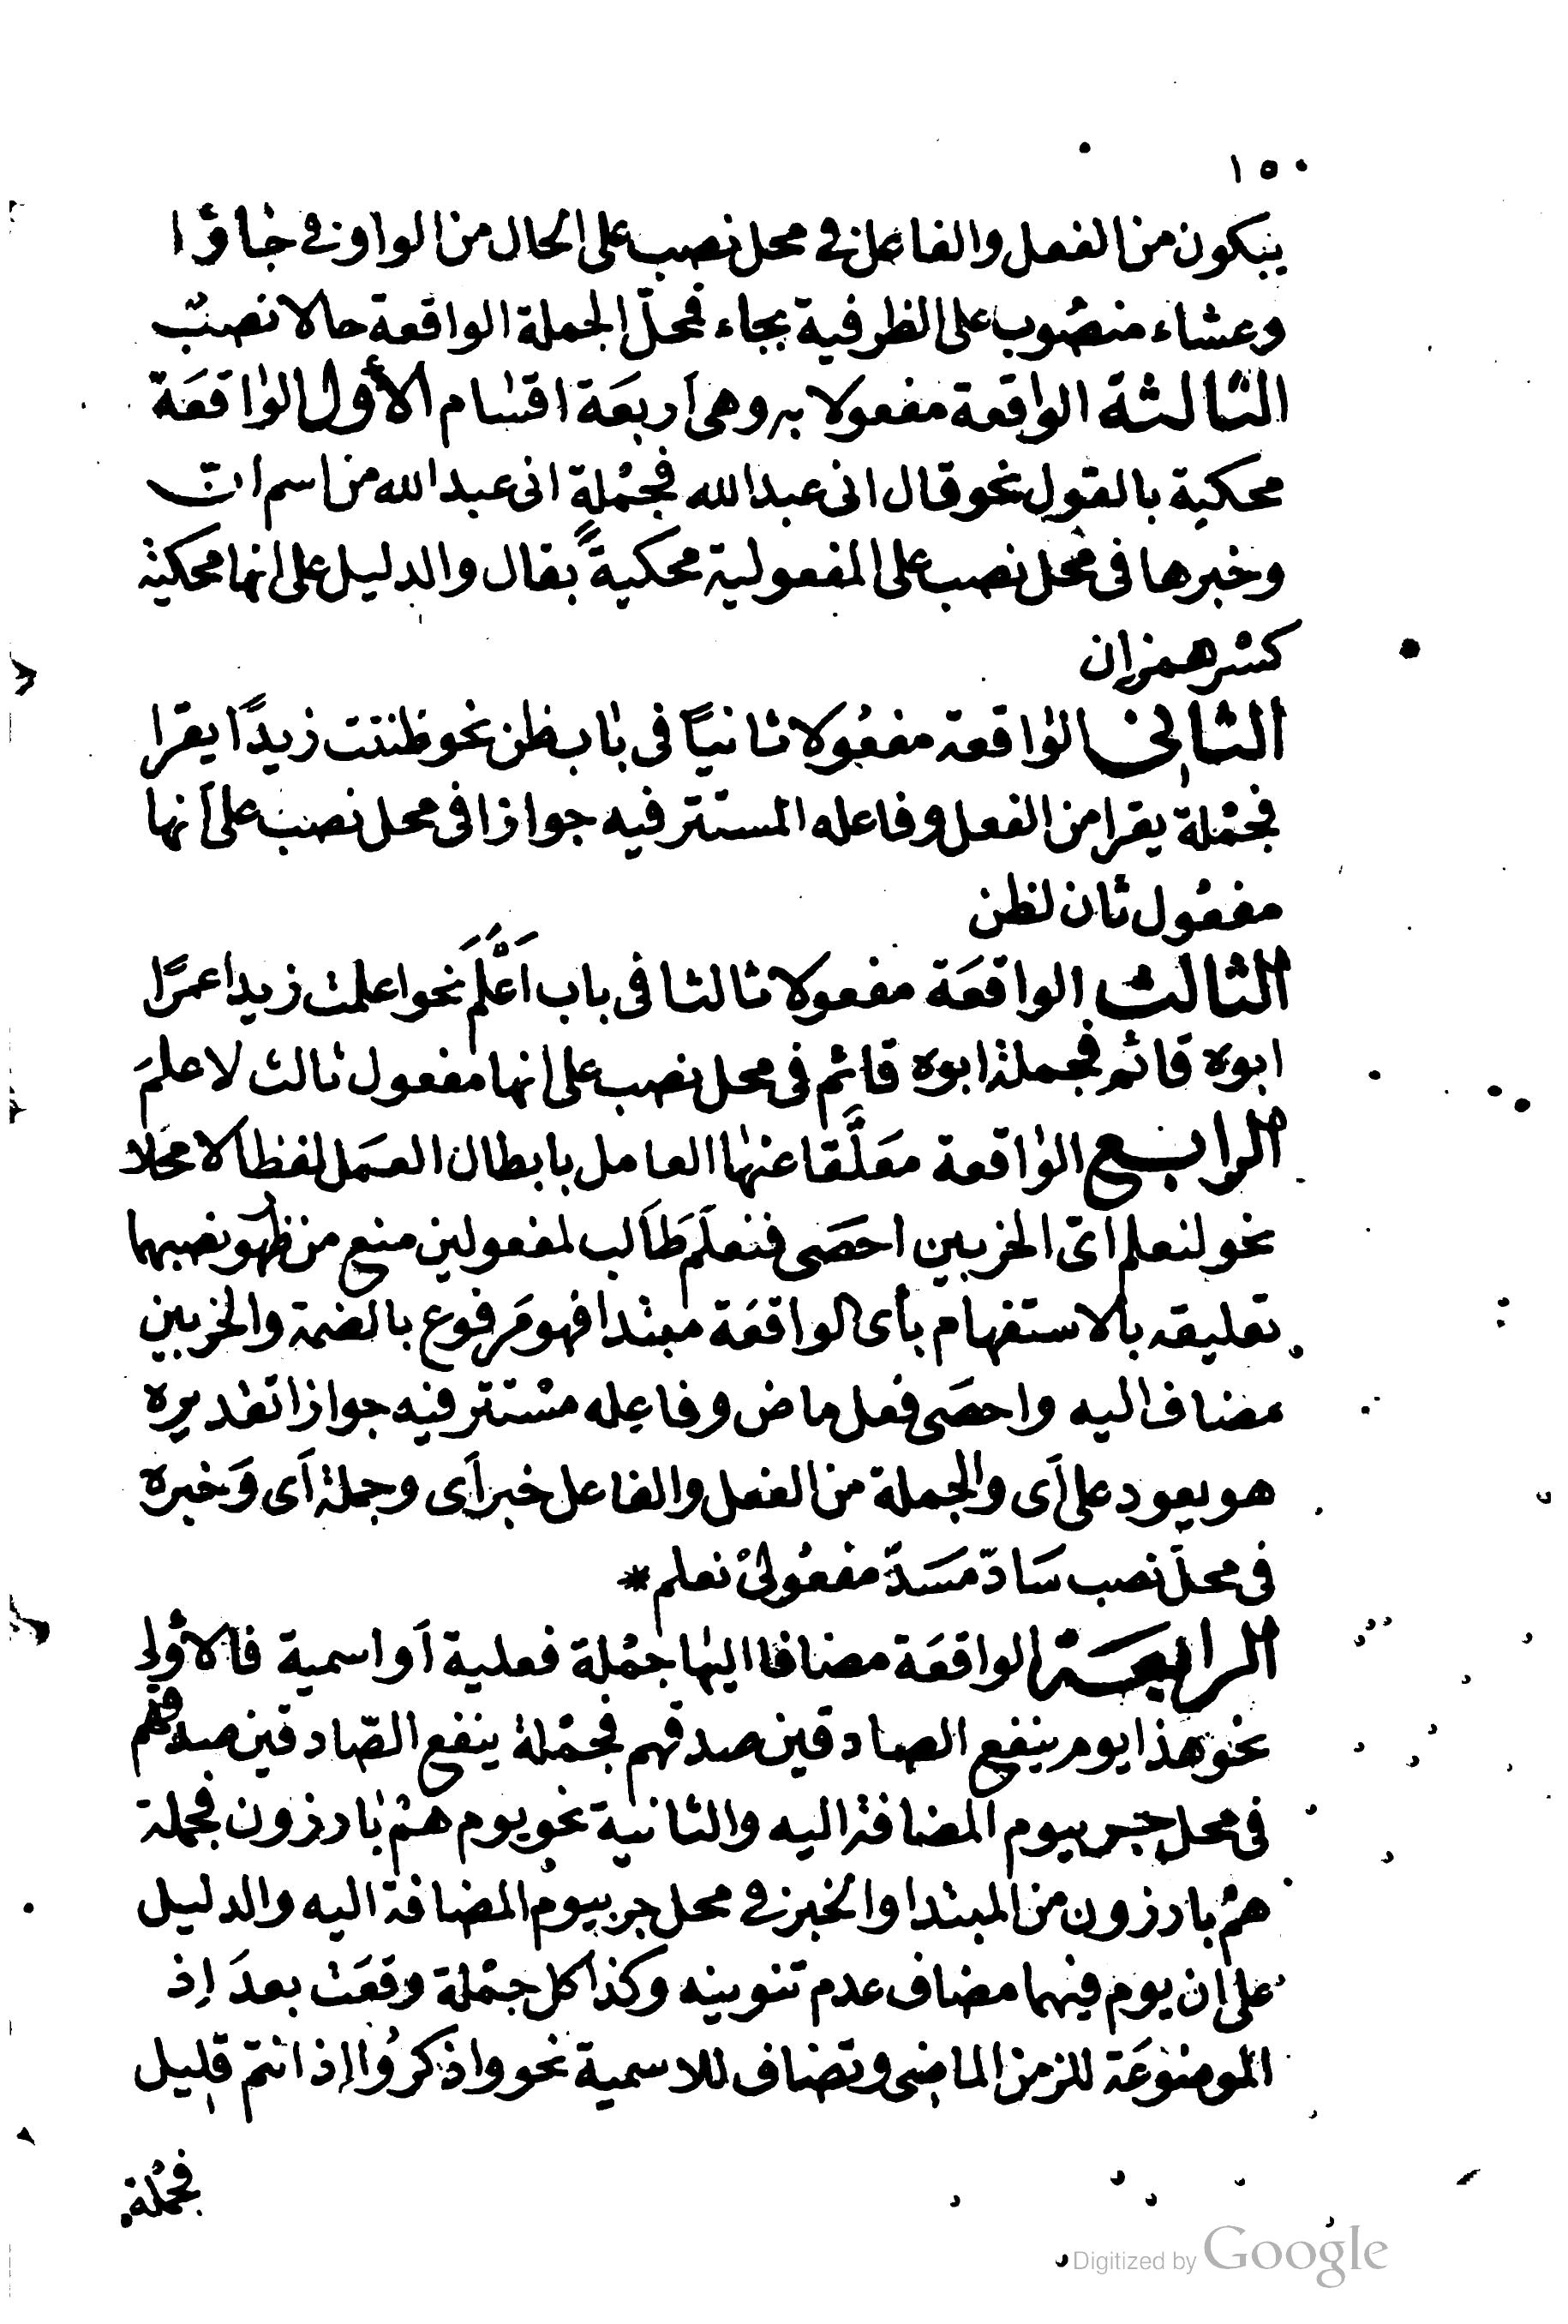 ١٥٠
يبكون من الفعل والفاعل في محل نصب على الحال من الواو في جاؤا
وعشاء منصوب على الظرفية بجاء فمحل الجملة الواقعة حالا نصب
الثالثة الواقعة مفعولا به وهي أربعة اقسام الأول الواقعة
محكية بالقول نحو قال انى عبد الله فجملة انى عبد الله من اسم انّ
وخبرها فى محل نصب على المفعولية محكيةً بقال والدليل على انها محكية
كسر همزة إن
الثانى الواقعة مفعولا ثانيًا فى باب ظن نحو ظننت زيدًا يقرا
فجملة يقرا من الفعل وفاعله المستتر فيه جوازا فى محل نصب على أنها
مفعول ثان لظن
الثالث الواقعة مفعولا ثالثا فى باب أَعْلَمَ نحو اعلمت زيدا عمرًا
ابوه قائم فجملة ابوه قائم فى محل نصب على انها مفعول ثالث لاعلمَ
الرابع الواقعة معَلَّقا عنها العامل بابطال العمل لفظا لا محلا
نحو لنعلم اى الحزبين احصَى فنعلَم طَالب لمفعولين منع من ظهور نصبهما
تعليقه بالاستفهام بأى الواقعَة مبتدا فهو مَرفوع بالضمة والحزبين
مضاف اليه واحصَى فعل ماض وفاعله مستتر فيه جوازا تقديره
هو يعود على أى والجملة من الفعل والفاعل خبر أى وجملة أى وَخبره
فى محلّ نصب سَادّ مَسَدّ مفعُولىْ نعلم *
الرابعة الواقعَة مضافا اليها جمْلة فعلية أو اسمية فالأولى
نحو هذا يوم ينفع الصادقين صدقهم فجمْلة ينفع الصّادقين صدقهم
فى محل جر بيوم المضافة اليه والثانية نحو يوم همْ بارزون فجملة
همْ بارزون من المبتدا والخبر في محل جر بيوم المضافة اليه والدليل
على ان يوم فيهما مضاف عدم تنوينه وكذا كل جمْلة وقعَت بعدَ إذ
الموضوعَة للزمن الماضى وتضاف للاسمية نحو واذكرُوا إذ انتم قليل
فجمْلة
Digitized by Google